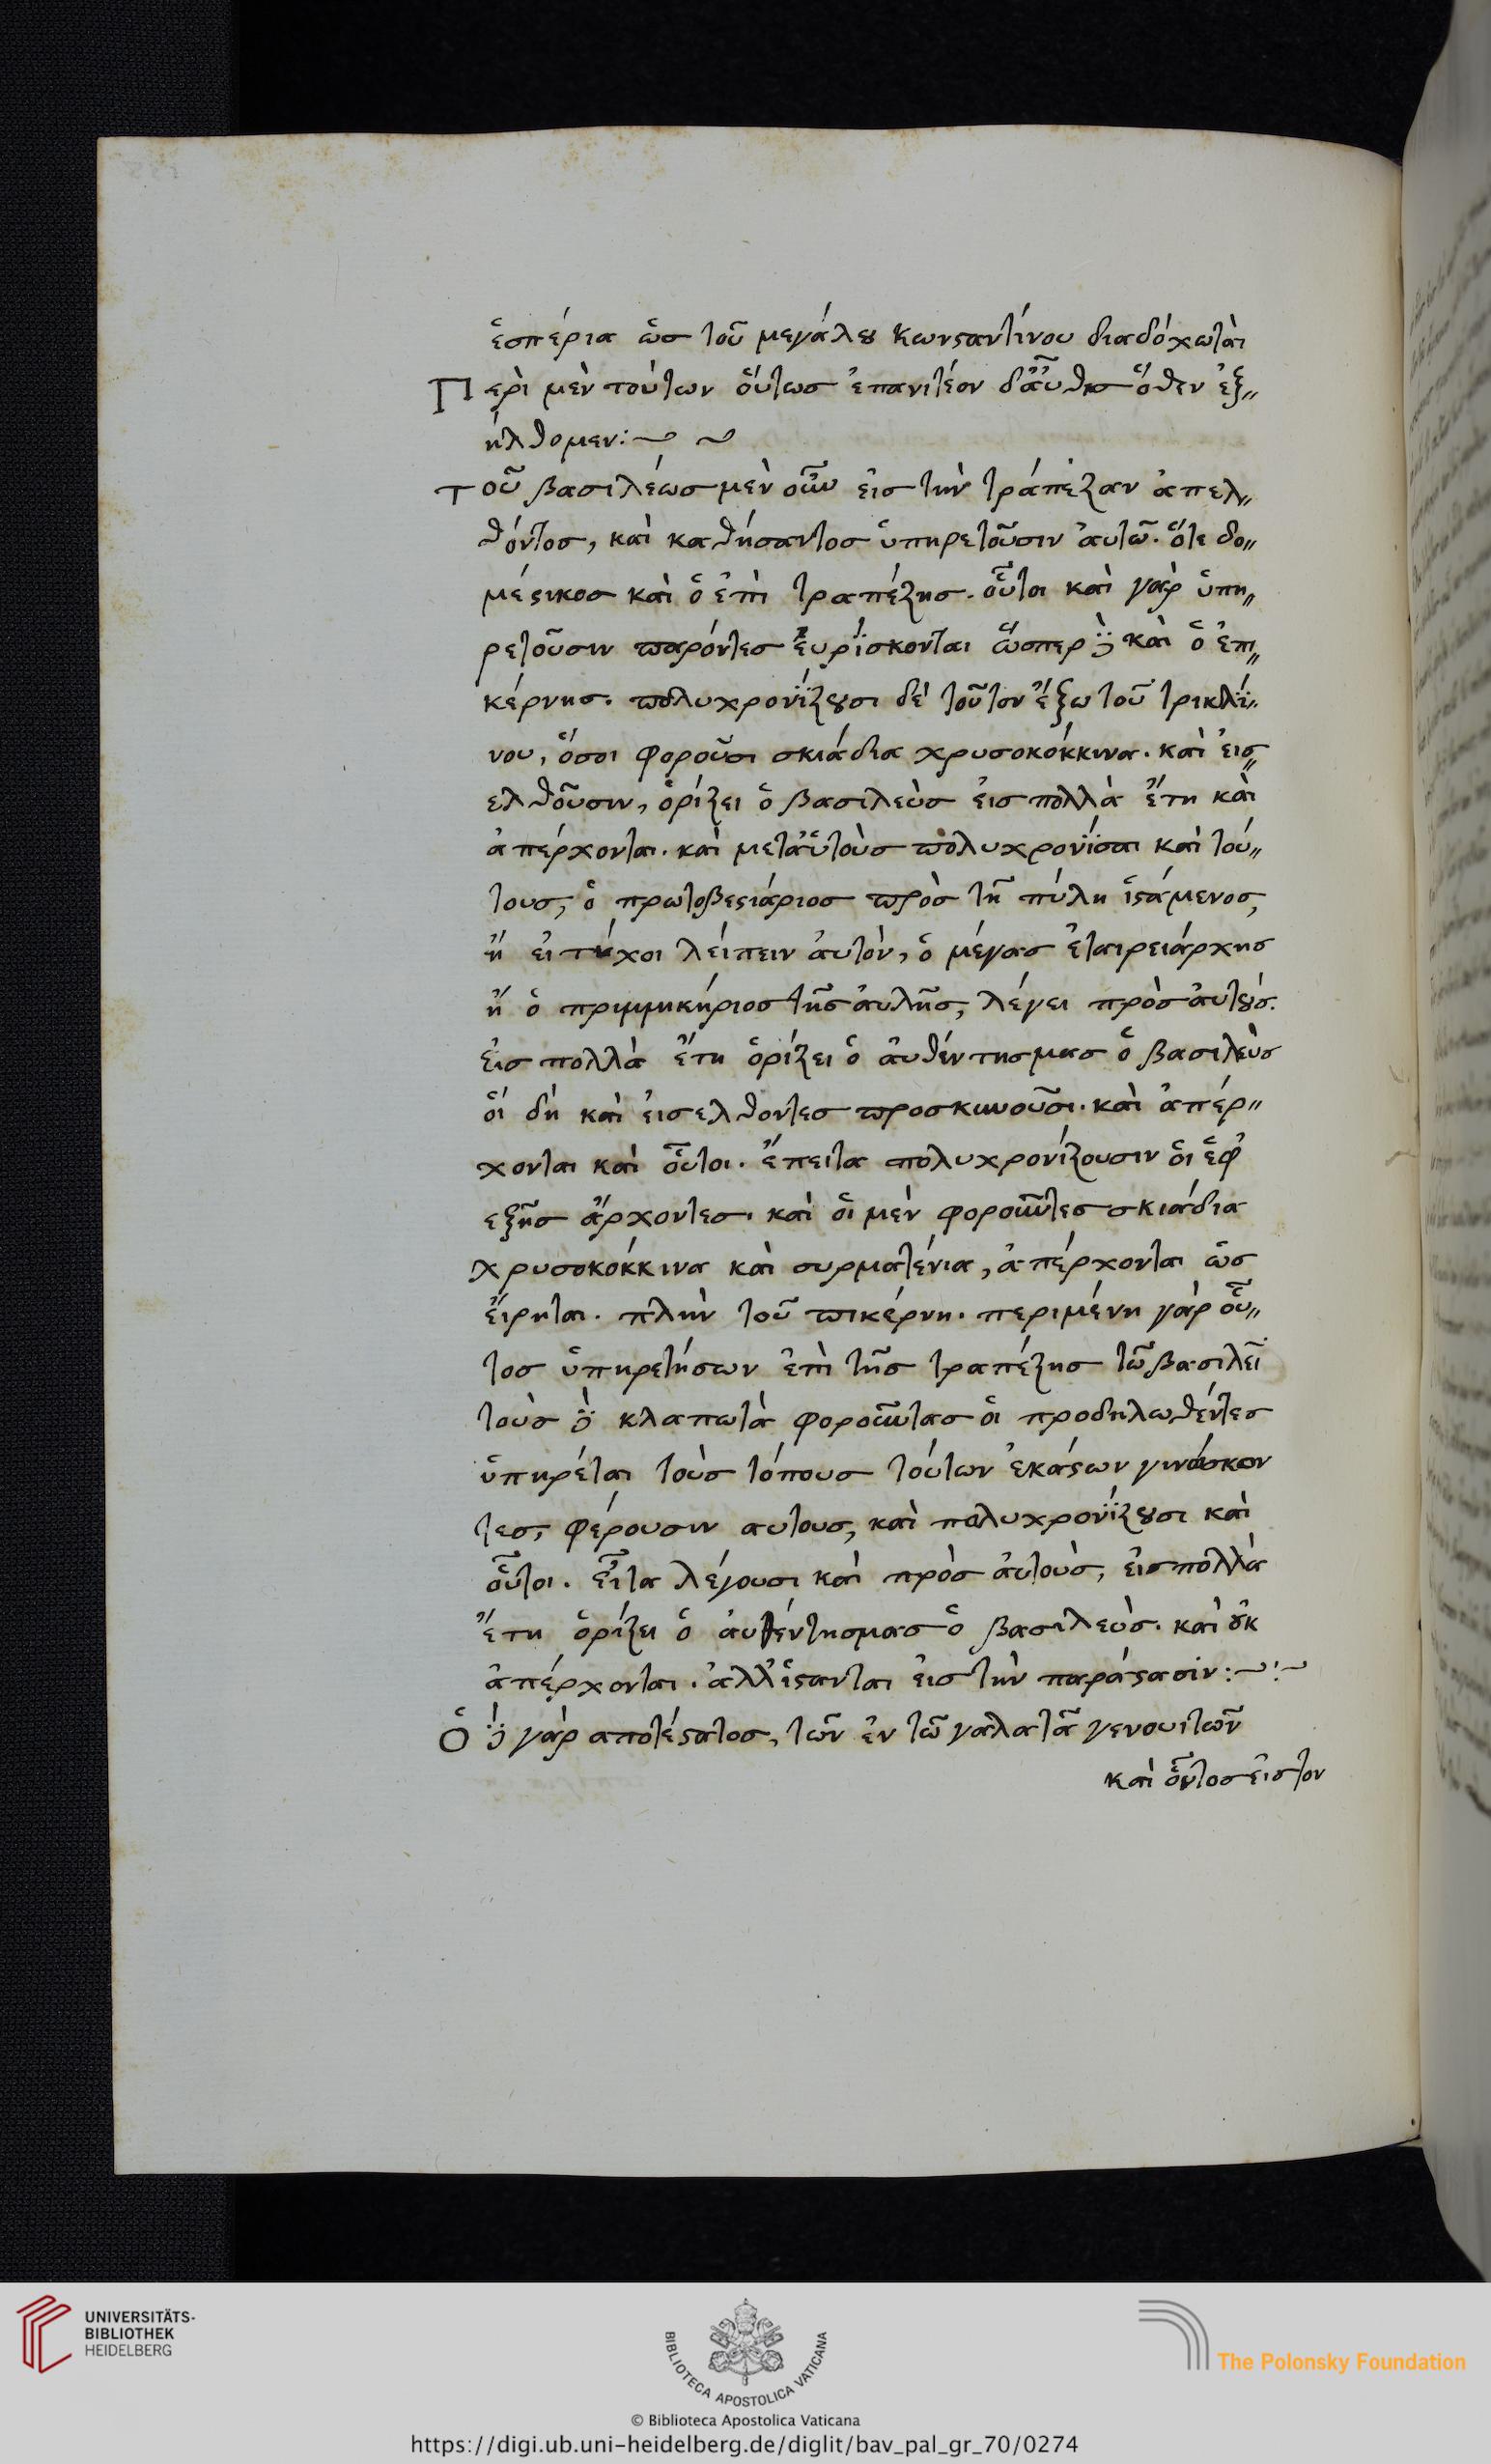 ἑσπέρια ὡς τοῦ μεγάλου κωνσταντίνου διαδόχω τὰ
Περὶ μὲν τούτων οὕτως ἐπανιτέον δ' αὖθις ὅθεν ἐξ"
ήλθομεν:~ ~
Τοῦ βασιλέως μὲν οὖν εἰς τὴν τράπεζαν ἀπελ"
θόντος, καὶ καθήσαντος ὑπηρετοῦσιν ἀυτῶ. ὅτε δο"
μέστικος καὶ ὁ ἐπὶ τραπέζης. οὗτοι καὶ γὰρ ὑπη"
ρετοῦσιν παρόντες εὑρΐσκονται ὥσπερ δὲ καὶ ὁ ἐπι"
κέρνης. πολυχρονΐζουσι δὲ τοῦτον ἔξω τοῦ τρικλΐ"
νου, ὅσοι φοροῦσι σκιάδια χρυσοκόκκινα. καὶ εἰσ"
ελθοῦσιν, ὁρίζει ὁ βασιλεὺς εἰς πολλὰ ἔτη καὶ
ἀπέρχονται. καὶ μετ' ἀυτοὺς πολυχρονΐσαι καὶ τού"
τους, ὁ πρωτοβεστιάριος πρὸς τῆ πύλη ἱστάμενος,
ἢ εἰ τύχοι λείπειν ἀυτόν, ὁ μέγας ἑταιρειάρχης
ἢ ὁ πριμμικήριος τῆς ἀυλῆς, λέγει πρὸς ἀυτούς.
εἰς πολλὰ ἔτη ὁρίζει ὁ ἀυθέντης μας ὁ βασιλεὺς
οἱ δὴ καὶ εἰσελθοντες προσκυνοῦσι. καὶ ἀπέρ"
χονται καὶ οὗτοι. ἔπειτα πολυχρονίζουσιν οἱ ἐφ'
εξῆς ἄρχοντες. καὶ οἱ μὲν φοροῦντες σκιάδια
χρυσοκόκκινα καὶ συρματένια, ἀπέρχονται ὡς
εἴρηται. πλὴν τοῦ πικέρνη. περιμένη γὰρ οὗ"
τος ὑπηρετήσων ἐπὶ τῆς τραπέζης τῶ βασιλεῖ
τοὺς δὲ κλαπωτὰ φοροῦντας οἱ προδηλωθέντες
ὑπηρέται τοὺς τόπους τούτων ἑκάστων γινώσκον
τες, φέρουσιν αυτους, καὶ πολυχρονΐζουσι καὶ
οὗτοι. εἶτα λέγουσι καὶ πρὸς ἀυτοὺς, εἰς πολλὰ
ἔτη ὁρίζει ὁ ἀυθέντης μας ὁ βασιλεὺς. καὶ οὐκ
ἀπέρχονται. ἀλλ' ἵστανται εἰς τὴν παράστασιν:~'~
Ὁ δὲ γὰρ αποτέστατος, τῶν ἐν τῶ γαλατᾶ γενουιτῶν
καὶ ὄντος εἰς τον
UNIVERSITÄTS-
BIBLIOTHEK
HEIDELBERG
BIBLIOTECA APOSTOLICA VATICANA
The Polonsky Foundation
© Biblioteca Apostolica Vaticana
https://digi.ub.uni-heidelberg.de/diglit/bav_pal_gr_70/0274